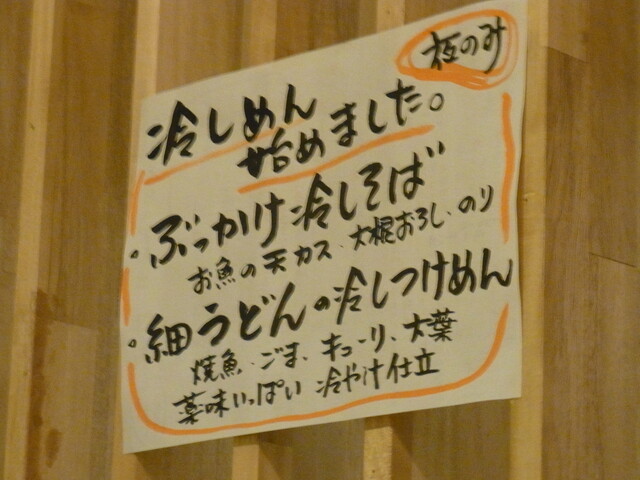 夜のみ
冷しめん
始めました。
・ぶっかけ冷しそば
お魚の天カス、大根おろし、のり
・細うどんの冷しつけめん
焼魚、ごま、キューリ、大葉
薬味いっぱい 冷や汁仕立